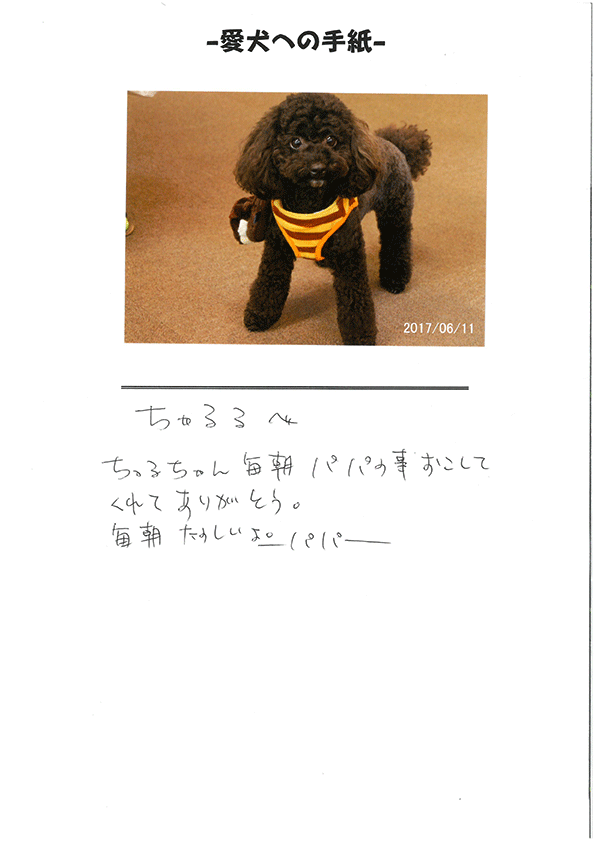 -愛犬への手紙-
2017/06/11
ちゃるるへ
ちゃるちゃん毎朝パパの事おこして
くれてありがとう。
毎朝たのしいよ。パパ